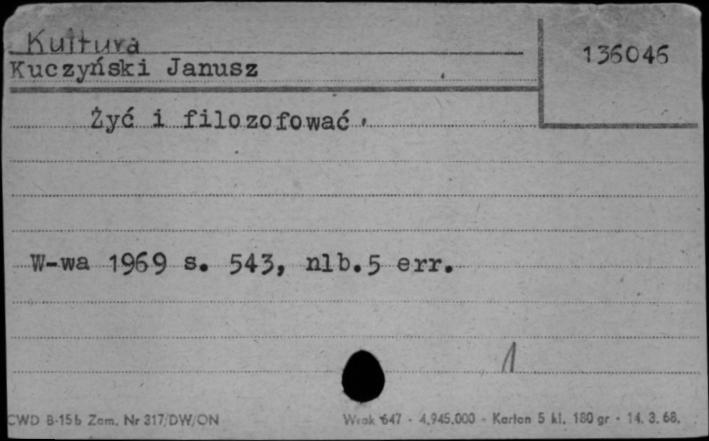 Kultura
136046
Kuczyński Janusz
Żyć i filozofować.
W-wa 1969 s. 543, nlb.5 err.
1
CWD B-15b Zam. Nr 317/DW/ON
647 - 4,945.000 - Karton 5 kl. 180 gr - 14. 3. 68.